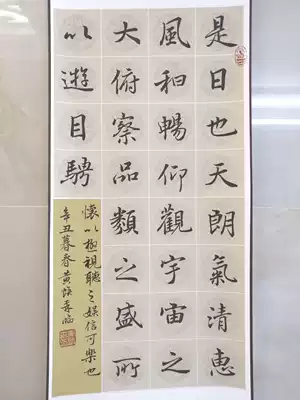 是日也天朗氣清惠
風和暢仰觀宇宙之
大俯察品類之盛所
以遊目騁
懷以極視聽之娛信可樂也
辛丑暮春黃